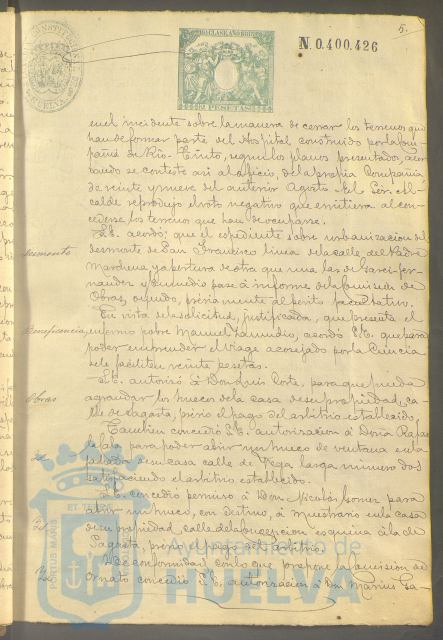 5.
10ª CLASE. AÑO
N.0.400.426
2 PESETAS
en el incidente sobre la manera de cerrar los terrenos que
han de formar parte del Hospital construido por la Com-
pañia de Rio-Tinto, segun los planos presentados, acor-
dando se conteste asi al oficio, de la propia Compañia
de veinte y nueve del anterior Agosto. El Sor. Al-
calde reprodujo el voto negativo que emitiera al con-
cederse los terrenos que han de ocuparse.
S.E. acordó, que el espediente sobre urbanizacion del
desmonte de San Francisco linea de la calle del Padre
Marchena y apertura de otra que una las de Garci-fer-
nandez y pase á informe de la Comision de
Obras, oyendo, préviamente al perito facultativo.
En vista de la solicitud, justificada, que presenta el
Beneficencia
enfermo pobre Manuel Zamudio, acordó S.E. que para
poder emprender el viage aconsejado por la Ciencia
se le faciliten veinte pesetas.
S.E. autorizó á Don Luis Corte, para que pueda
Obras
agrandar los huecos de la casa de su propiedad, ca-
lle de Sagasta, prévio el pago del arbitrio establecido.
Tambien concedió S.E. autorizacion á Doña Rafae-
la para poder abrir un hueco de ventana en la
Id
fachada de su casa calle de Vega larga número dos
satisfaciendo el arbitrio establecido.
S.E. concedió permiso á Don Nicolás Gomez para
abrir un hueco, con destino, á muestrario en la casa
Id
de su propiedad, calle de la Concepcion esquina á la de
Sagasta, prévio el pago del arbitrio.
De conformidad con lo que propone la Comision de
Id
Ornato concedió S.E. autorizacion á Don Marius Ga-
PORTUS MARIS
Ayuntamiento de
HUELVA